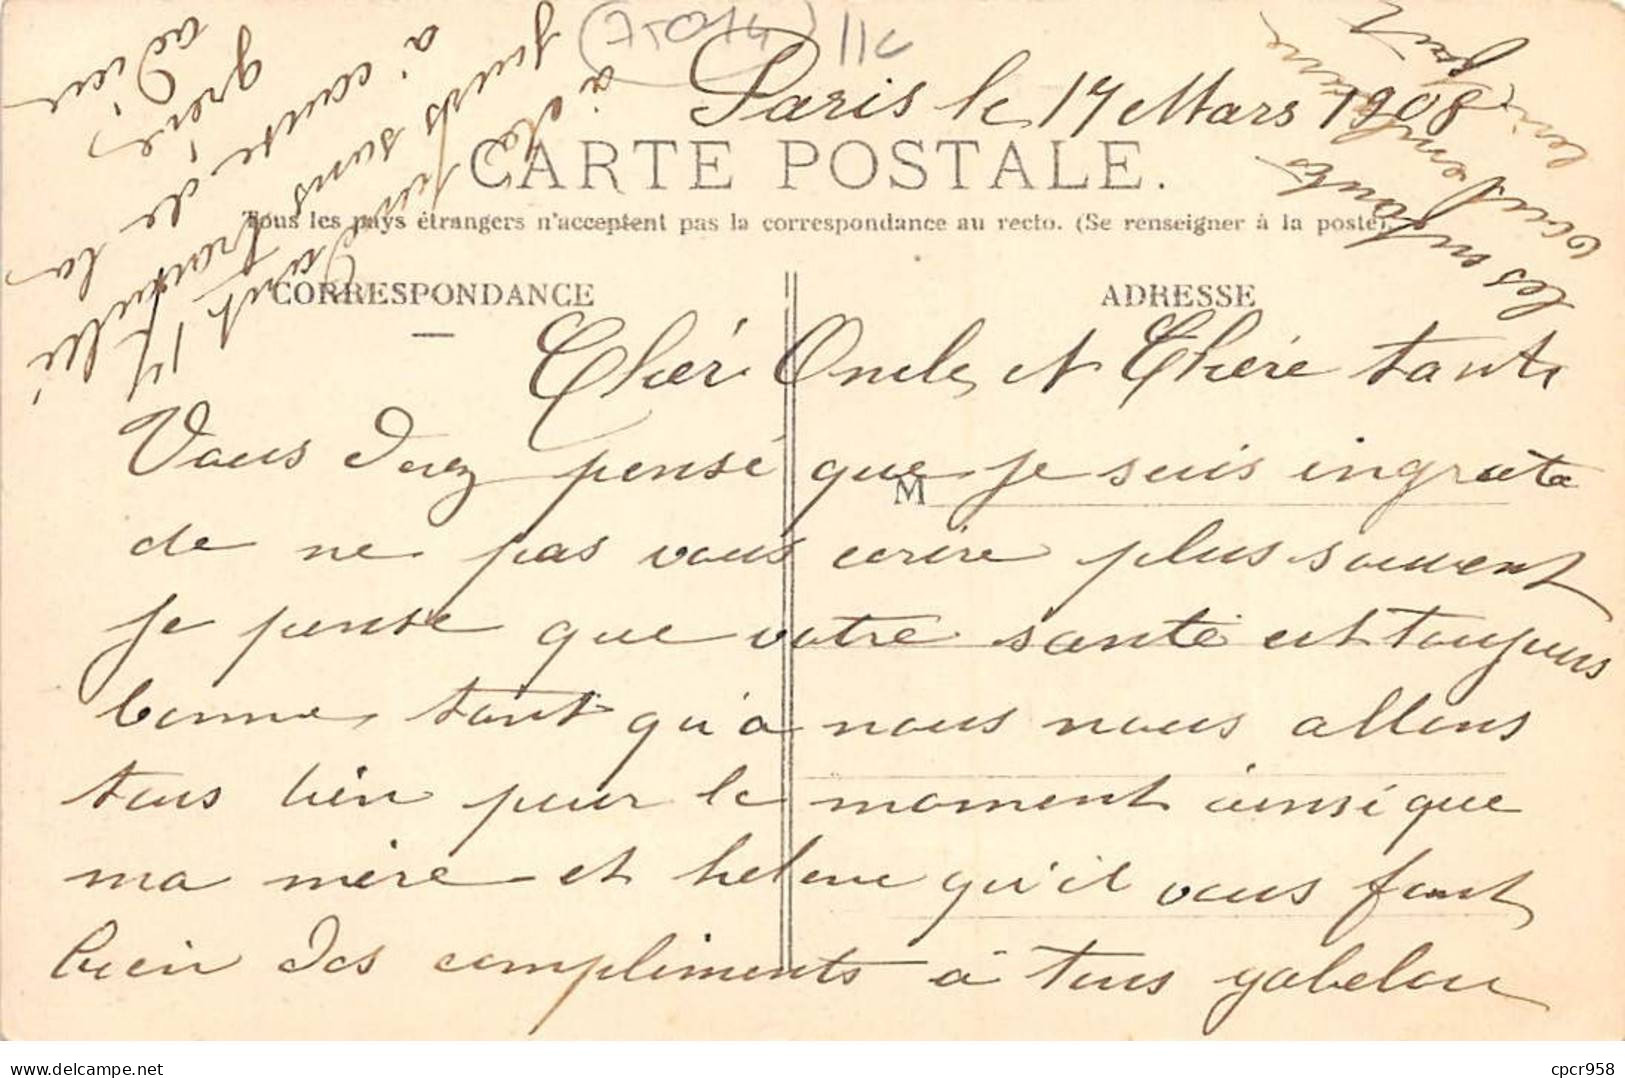 (75-014) 11C
Paris le 17 Mars 1908
CARTE POSTALE.
Tous les pays étrangers n'acceptent pas la correspondance au recto. (Se renseigner à la poste).
CORRESPONDANCE
ADRESSE
M
Cher Oncle, et Chère tante
Vous Devez pensé que je suis ingrate
de ne pas vous ecrire plus souvent
je pense que votre santé est toujours
bonne, tant qu'a nous nous allons
tous bien pour le moment ainsi que
ma mère et helene qu'il vous font
bien Des compliments à tous gabelou
à été
jours sans travaillé
à cause de la
grève,
adieu
les
vont
lui
fait